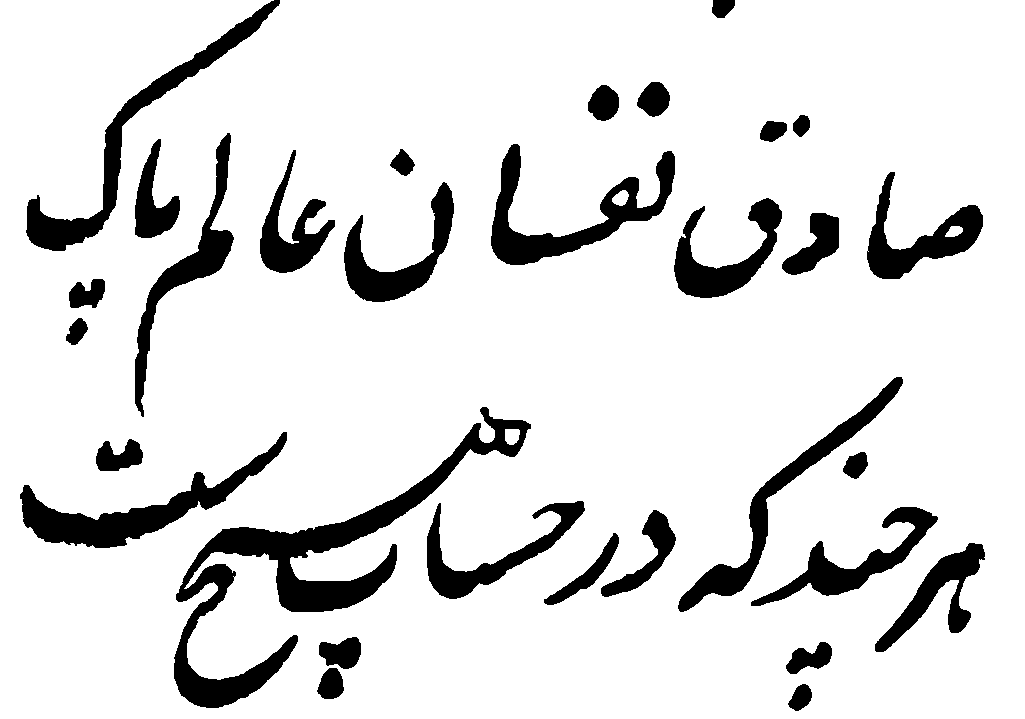 صادق نفسان عالم پاک
هر چند که در حساب هیچ ست